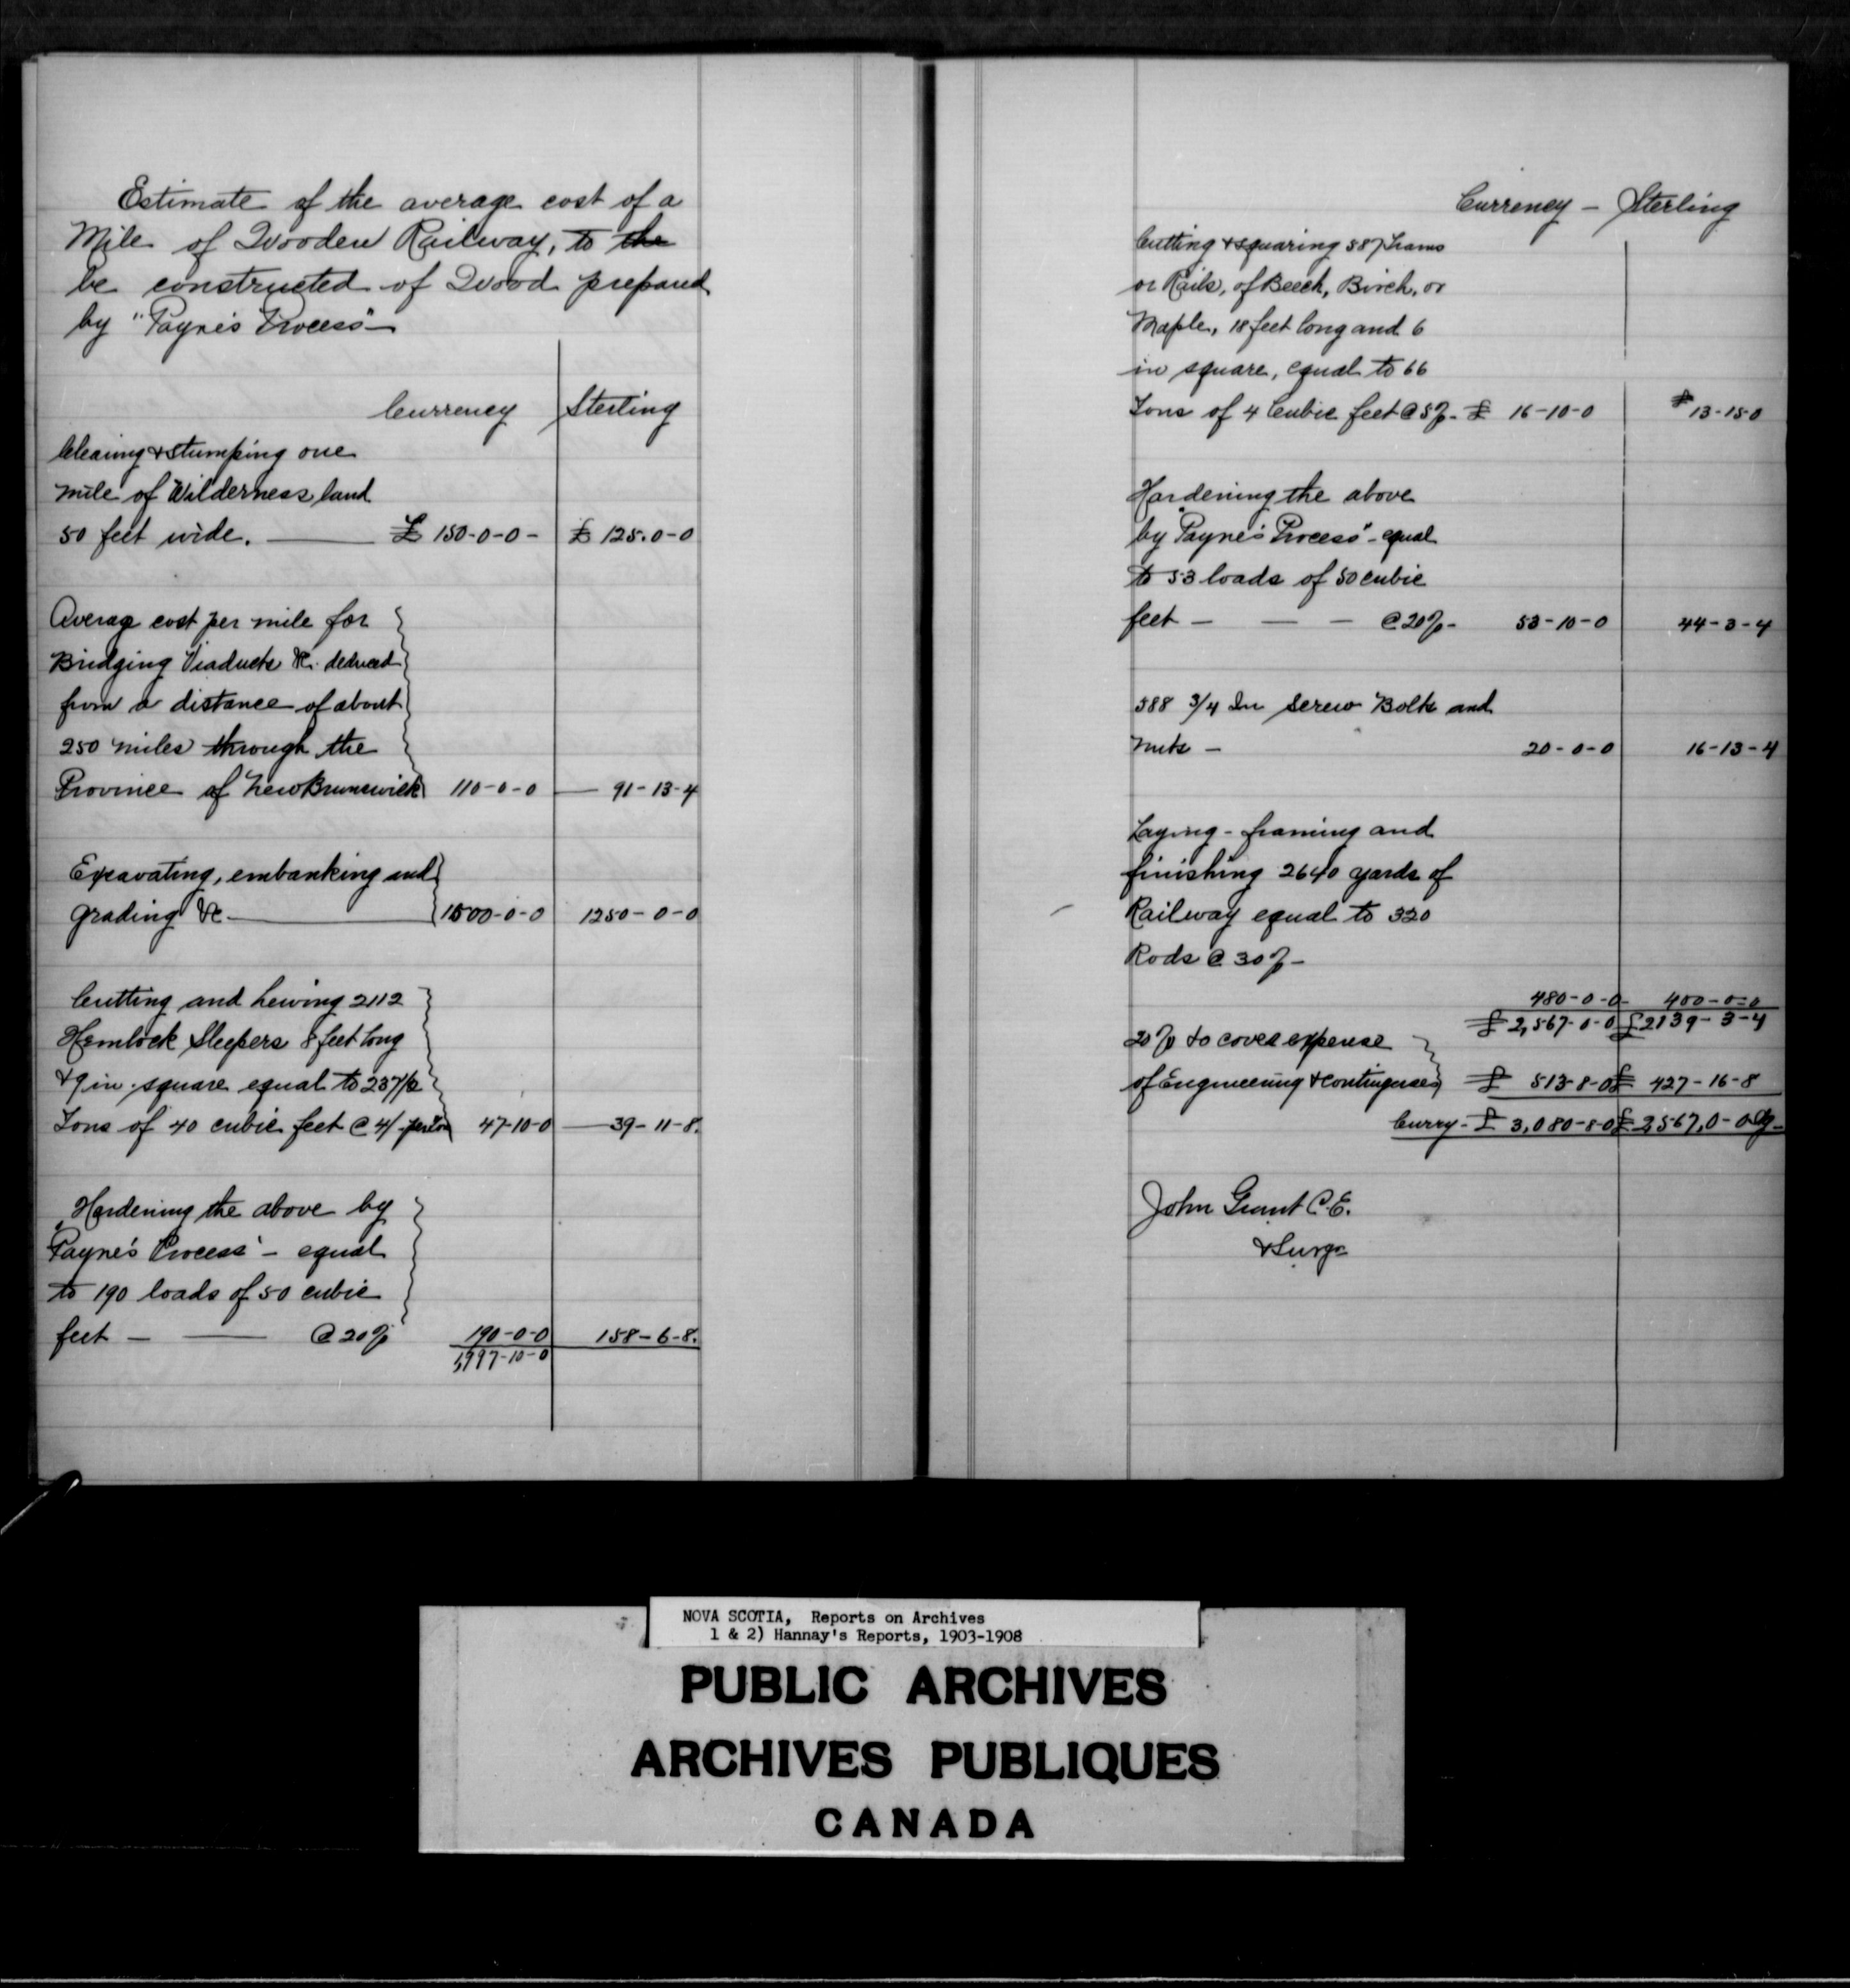 Estimate of the average cost of a
Mile of Wooden Railway, to the
be constructed of Wood prepared
by "Payne's Process"—
Currency Sterling
Clearing & stumping one
mile of Wilderness land
50 feet wide. — £ 150-0-0- £ 125.0-0
Average cost per mile for
Bridging Viaducts &c. deduced
from a distance of about
250 miles through the
Province of New Brunswick 110-0-0 — 91-13-4
Excavating, embanking and
grading &c — 1500-0-0 1250-0-0
Cutting and hewing 2112
Hemlock Sleepers 8 feet long
& 9 in. square equal to 237½
Tons of 40 cubic feet @ 4/- per ton 47-10-0 — 39-11-8.
Hardening the above by
"Payne's Process" — equal
to 190 loads of 50 cubic
feet — — @ 20/- 190-0-0 158-6-8.
1,997-10-0
Currency — Sterling
Cutting & squaring 587
or Rails, of Beech, Birch, or
Maple, 18 feet long and 6
in square, equal to 66
Tons of 4 Cubic feet @ 5/- £ 16-10-0 £ 13-15-0
Hardening the above
by "Payne's Process" - equal
to 53 loads of 50 cubic
feet — — — @ 20/- 53-10-0 44-3-4
588 3/4 In Screw Bolts and
nuts — 20-0-0 16-13-4
Laying - framing and
finishing 2640 yards of
Railway equal to 320
Rods @ 30/-
480-0-0- 400-0=0
£ 2,567-0-0 £ 2139-3-4
20% to cover expense
of Engineering & contingencies £ 513-8-0 £ 427-16-8
Curry - £ 3,080-8-0 £ 2,567,0-0 Stg-
John Grant C.E.
& Survr
NOVA SCOTIA, Reports on Archives
1 & 2) Hannay's Reports, 1903-1908
PUBLIC ARCHIVES
ARCHIVES PUBLIQUES
CANADA